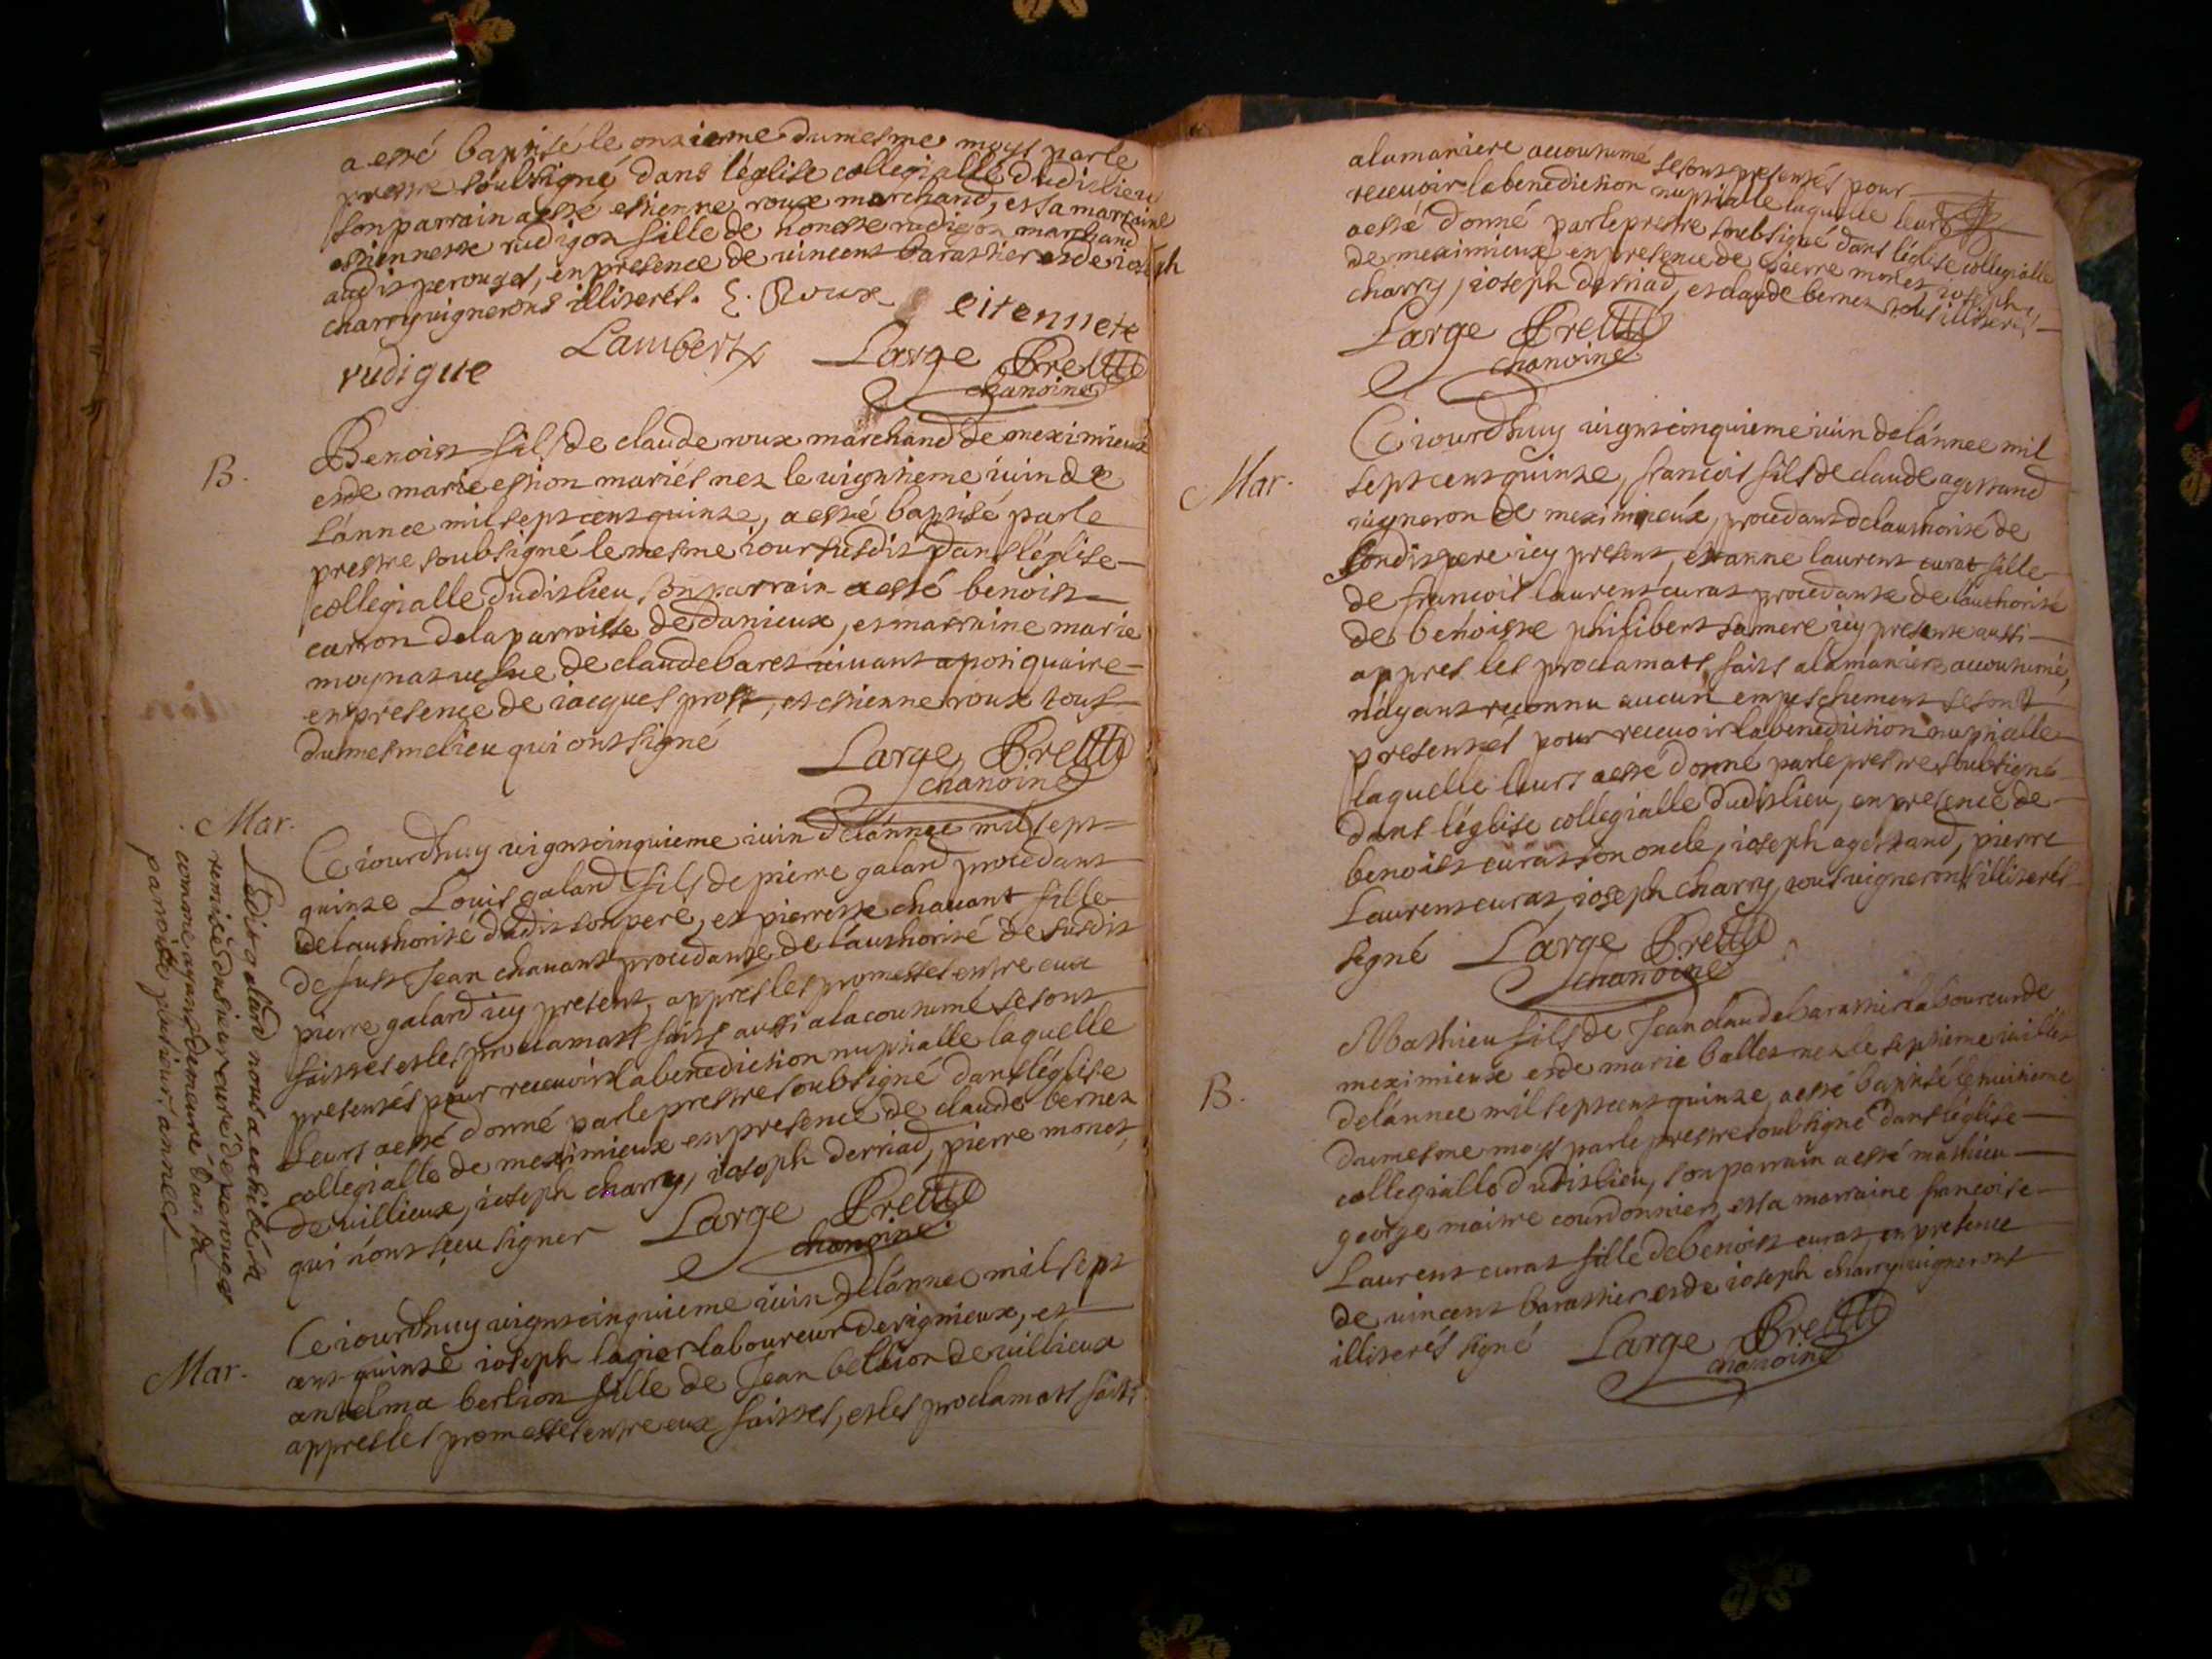 a esté baptisé le onzieme du mesme moys par le
prestre soubsigné dans l'église collegialle dudit lieu
son parrain a esté estienne roux marchand, et sa marraine
estiennette rudigoz fille de honeste rudigoz marchand
audit perouges, en presence de vincent barathier et de ioseph
charry vignerons illiterés. E. Roux eitennete
rudigue Lambert Large Pretre
chanoine
B.
Benoist fils de claude roux marchand de meximieux
et de marie estion mariés nez le vigntieme iuin de
l'annee mil sept cent quinze, a esté baptisé par le
prestre soubsigné le mesme iour susdit dans l'église
collegialle dudit lieu, son parrain a esté benoist
carron de la parroisse de danieux, et marraine marie
moynat vefue de claude baret vivant apotiquaire
en presence de iacques prost, et estienne roux tous
du mesme lieu qui ont signé
Large Pretre
chanoine
Mar.
Ledit galand nous a exhibé la
remise du sieur curé de perouges
comme ayant demeuré dan sa
parroisse plusieur annees
Ce iourdhuy vignt cinquieme iuin de l'annee mil sept
quinze Louis galand fils de pierre galand procedant
de l'authorité dudit son pere, et pierrette chavant fille
de fust Jean chavant procedante de l'authorité de susdit
pierre galard icy present, appres les promesses entre eux
faittes et les proclamats faits aussi a la coutumé se sont
presentés pour recevoir la benediction nuptialle laquelle
leurs a esté donné par le prestre soubsigné dans l'église
collegialle de meximieux en presence de claude bernez
de villieux, ioseph charry, ioseph derriad, pierre monet,
qui n'ont sçeu signer Large Pretre
chanoine
Mar.
Ce iourdhuy vignt cinquieme iuin de l'annee mil sept
ant quinze ioseph lagier laboureur de rignieux, et
antelma berlion fille de Jean bellion de villieux
appres les promesses entre eux faittes, et les proclamats faits
a la maniere accoutumé se sont presentés pour
recevoir la benediction nuptialle laquelle leurs
a esté donné par le prestre soubsigné dans l'église collegialle
de meximieux en presence de pierre monet, ioseph
charry, ioseph derriad, et claude bernez tous illiterés
Large Pretre
chanoine
Mar.
Ce iourdhuy vignt cinquieme iuin de l'annee mil
sept cent quinze, francois fils de claude agettand
vigneron de meximieux, procedant de l'authorité de
sondit pere icy present, et anne laurent curat fille
de francois laurent curat procedante de l'authorité
de benoitte philibert sa mere icy presente aussi
appres les proclamats faits a la maniere accoutumé,
n'ayant reconnu aucun empeschement se sont
presentés pour recevoir la benediction nuptialle
laquelle leurs a esté donné par le prestre soubsigné
dans l'église collegialle dudit lieu, en presence de
benoist curat son oncle, ioseph agettand, pierre
Laurent curat, ioseph charry, tous vignerons illiterés
signé Large Pretre
chanoine
B.
Mathieu fils de Jean claude barathier laboureur de
meximieux et de marie ballet nez le septieme iuillet
de l'annee mil sept cent quinze, a esté baptisé le huitieme
du mesme moys par le prestre soubsigné dans l'église
collegialle dudit lieu, son parrain a esté mathieu
george maitre courdonnier, et sa marraine francoise
Laurent curat fille de benoist curat en presence
de vincent barathier et de ioseph charry vignerons
illiterés signé Large Pretre
chanoine